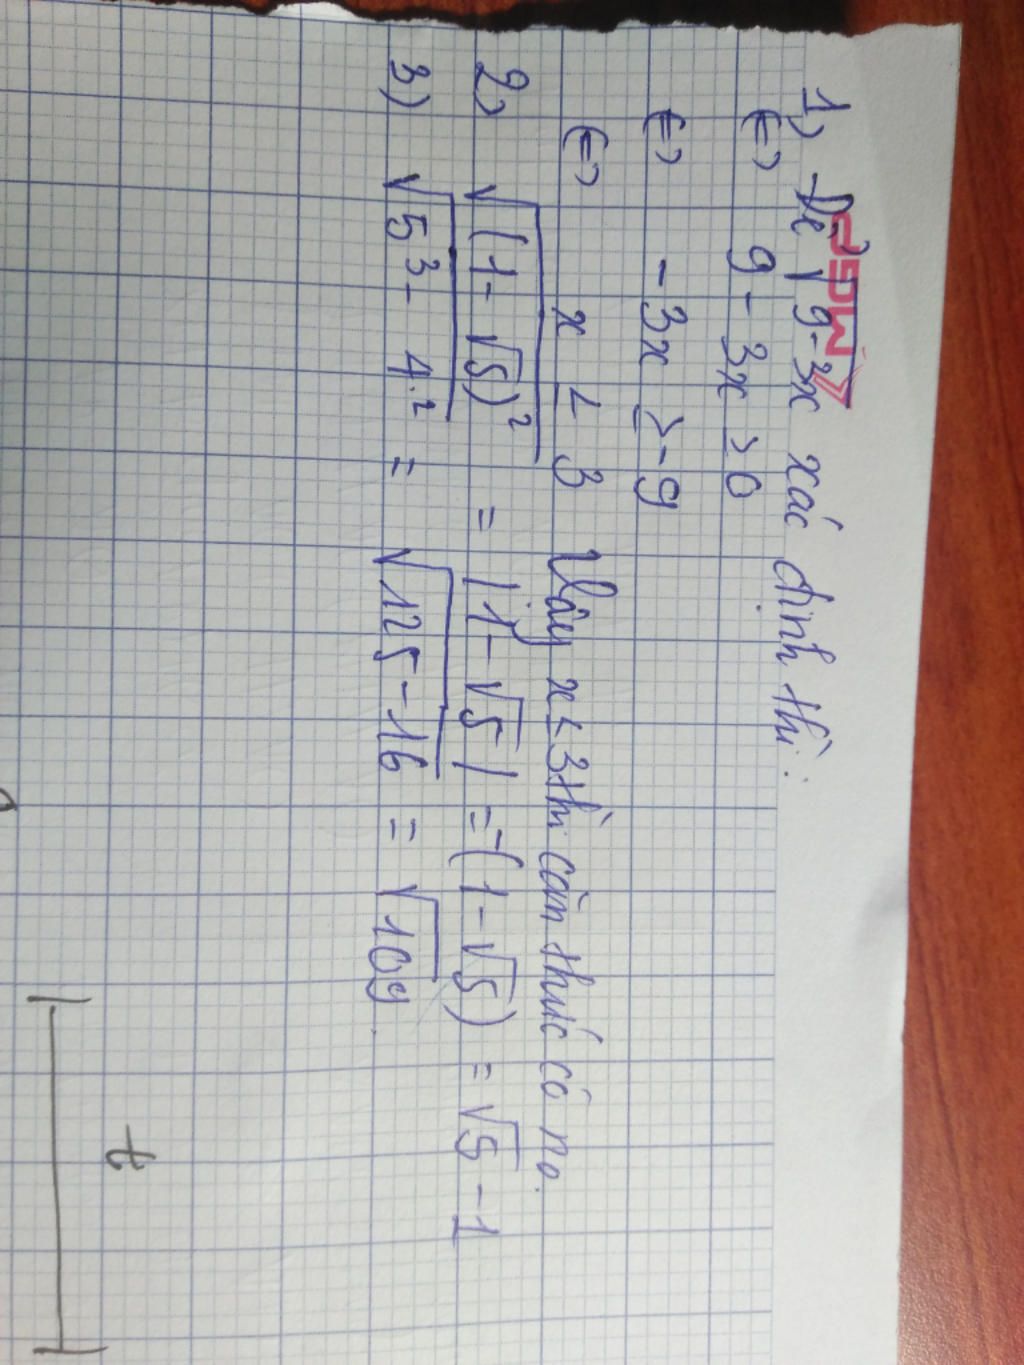 1) Để √9-3x xác định thì:
<=> 9 - 3x ≥ 0
<=> - 3x ≥ -9
<=> x ≤ 3 Vậy x ≤ 3 thì căn thức có n₀.
2) √(1 - √5)² = |1 - √5| = -(1 - √5) = √5 - 1
3) √5³ - 4.² = √125 - 16 = √109.
t